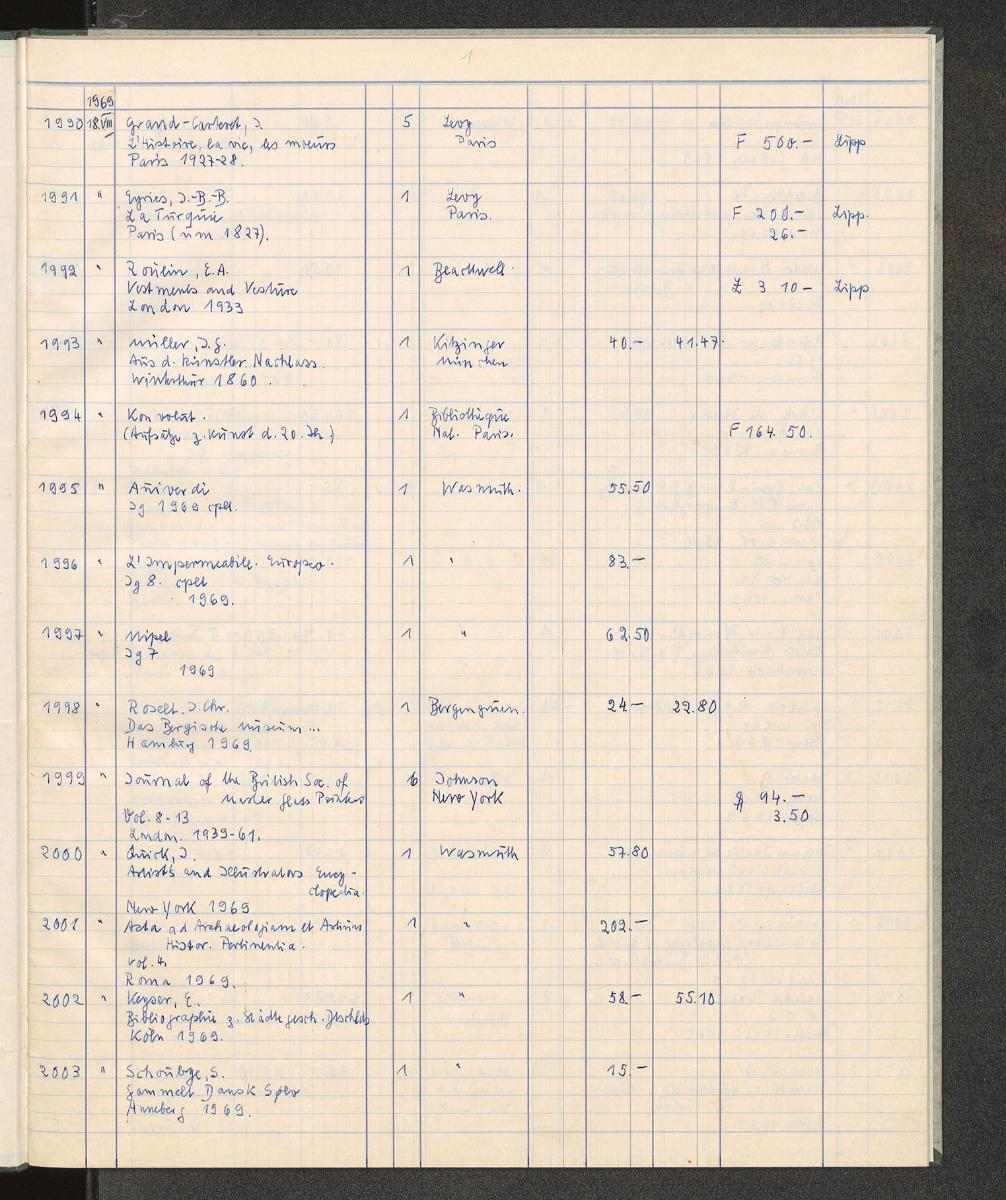 1
1969
1990 18.VIII Grand-Carteret, J. 5 Levy
L'Histoire, la vie, les moeurs Paris F 500.- Lipp
Paris 1927-28.
1991 " Eyries, J.-B.-B. 1 Levy
La Turquie Paris. F 200.- Lipp.
Paris (um 1827). 26.-
1992 " Roulin, E.A. 1 Beackwell.
Vestments and Vesture £ 3 10- Lipp
London 1933
1993 " Müller, J.G. 1 Kitzinger 40.- 41.47.
Aus d. Künstler Nachlass. München
Winterthur 1860.
1994 " Konvolut. 1 Bibliothèque
(Aufsätze z. Kunst d. 20. Jh.) Nat. Paris. F 164.50.
1995 " Auverdi 1 Wasmuth. 55.50
Jg 1969 cplt.
1996 " L'Impermeabile Europeo. 1 " 83.-
Jg 8. cplt
1969.
1997 " Nipel 1 " 62.50
Jg 7
1969
1998 " Roselt, J. Chr. 1 Bergengruen. 24- 22.80
Das Bergische Museum...
Hamburg 1969.
1999 " Journal of the British Soc. of 6 Johnson
Master Glass Painters New York $ 94.-
Vol. 8-13 3.50
London. 1939-61.
2000 " Quick, J. 1 Wasmuth 57.80
Artists and Illustrators Ency-
clopedia.
New York 1969
2001 " Acta ad Archaeologiam et Artium 1 " 202.-
Histor. Pertinentia.
Vol. 4.
Roma 1969.
2002 " Keyser, E. 1 " 58.- 55.10
Bibliographie z. Städtegesch. Dtschlds.
Köln 1969.
2003 " Schoubye, S. 1 " 15.-
Gammelt Dansk Sølv
Anneberg 1969.